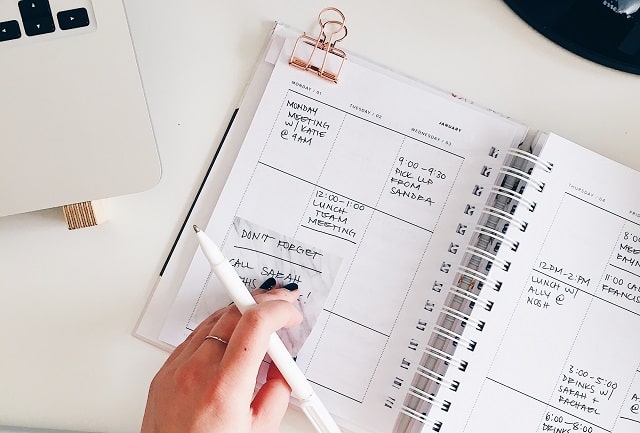 JANUARY
MONDAY / 01
MONDAY
MEETING
W/ KATIE
@ 9AM
TUESDAY / 02
12:00-1:00
LUNCH
TEAM
MEETING
WEDNESDAY / 03
9:00-9:30
PICK UP
FROM
SANDRA
DON'T FORGET
CALL SARAH
THURSDAY / 04
12PM-2PM
LUNCH W/
ALLY @
NOSH
3:00-5:00
DRINKS W/
SARAH +
RACHAEL
6:00-8:00
11:00 CALL